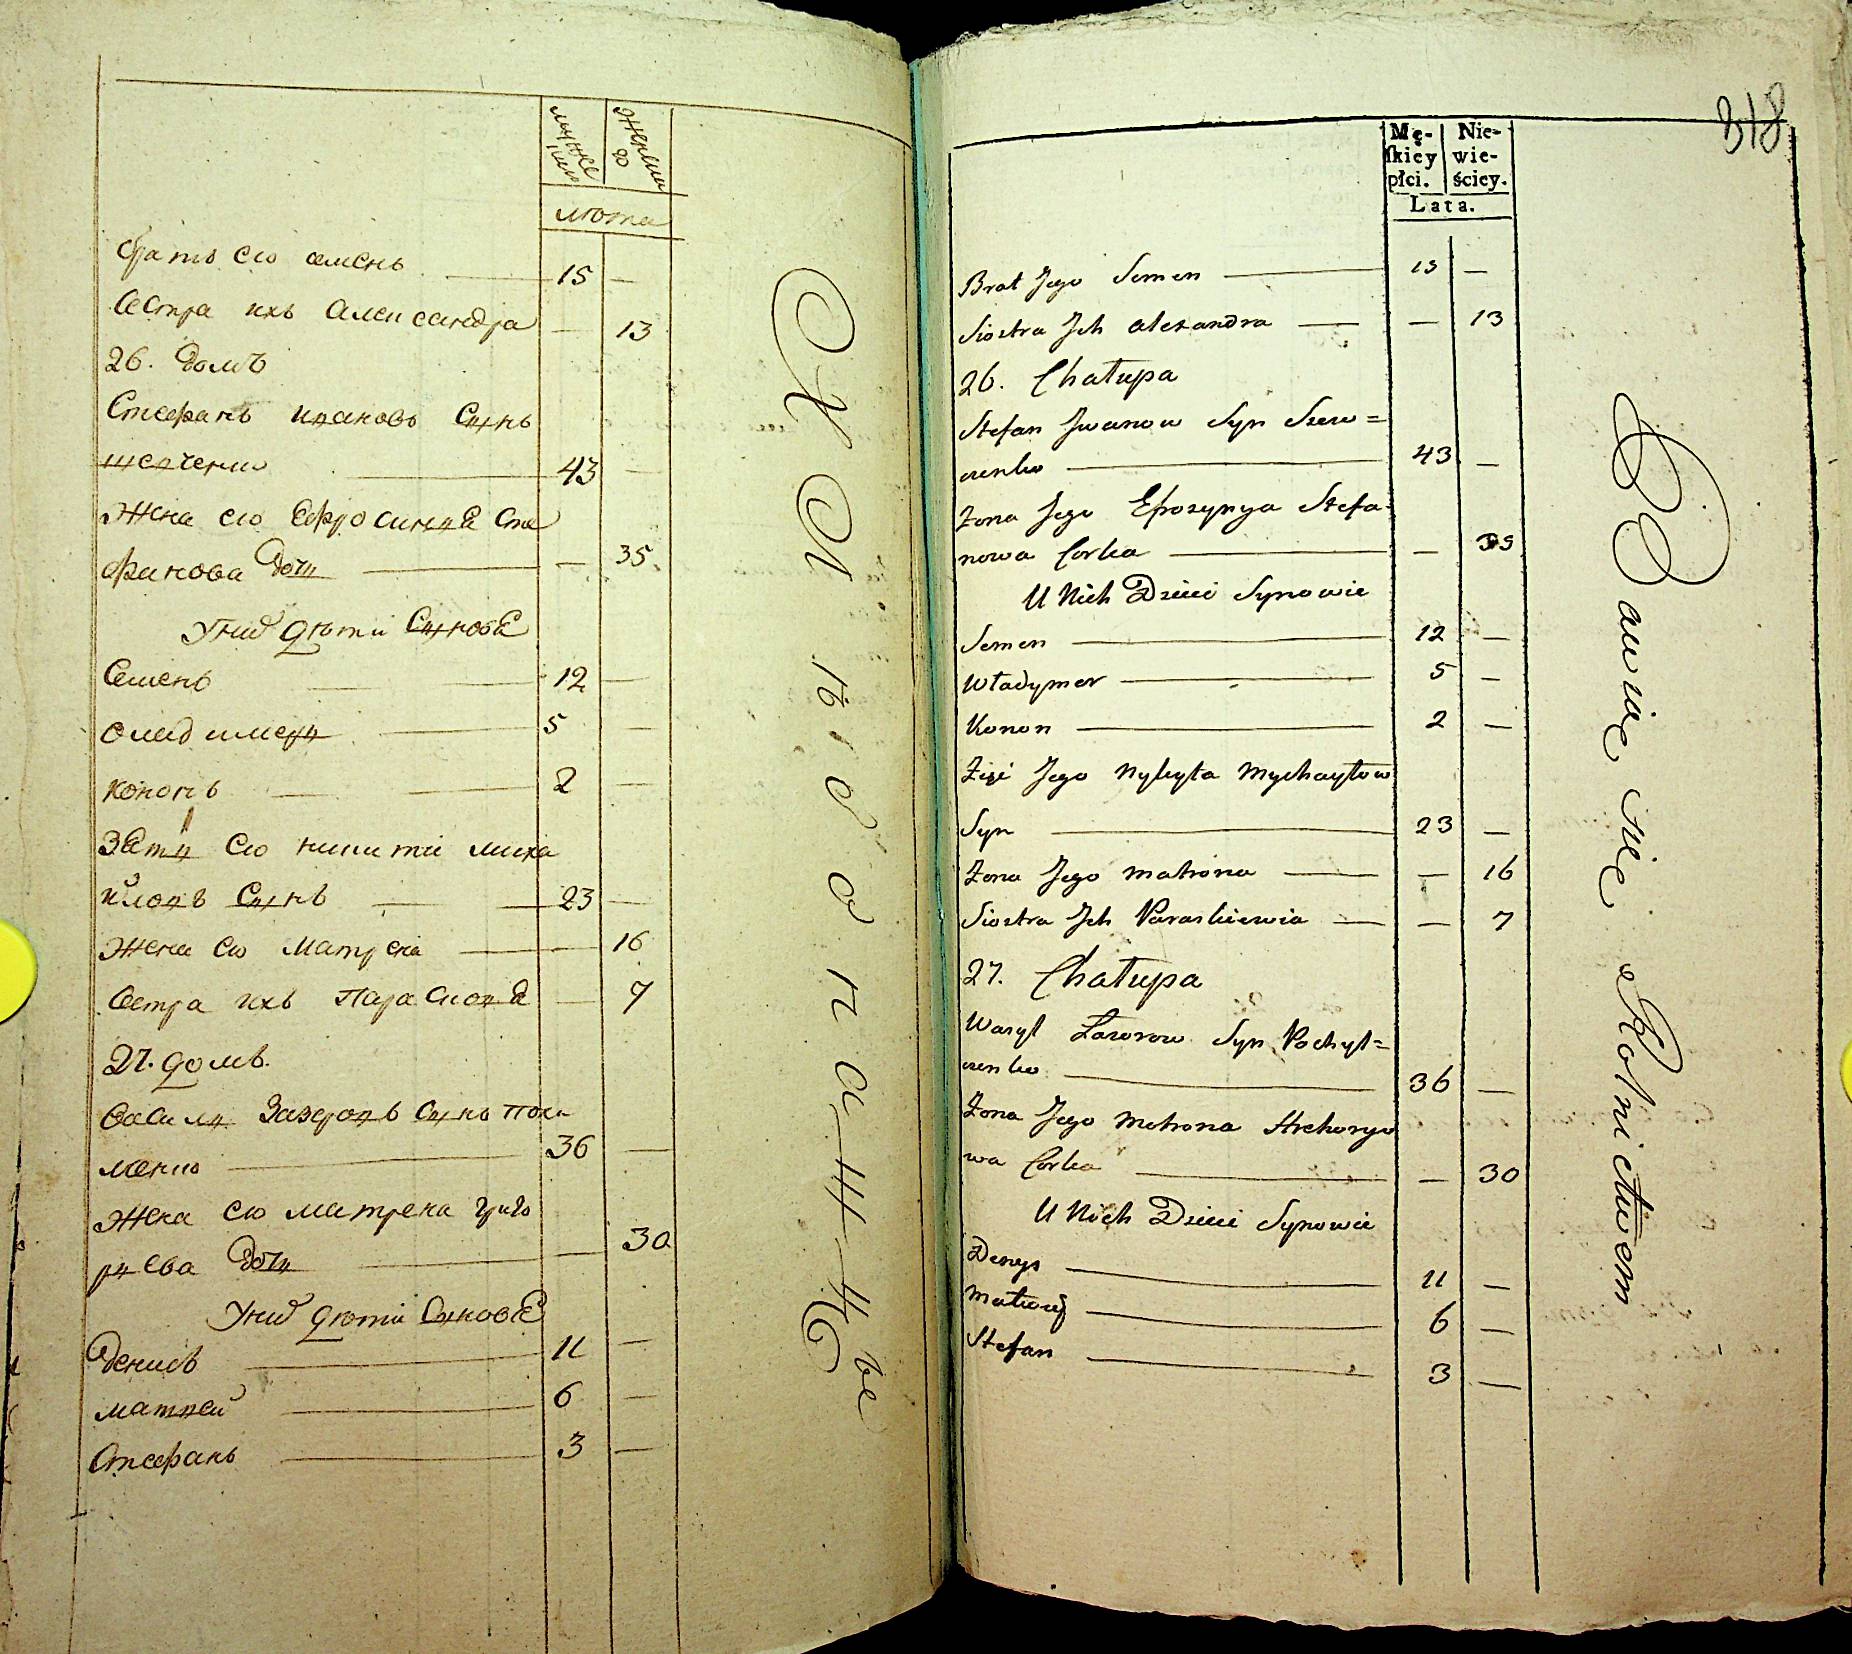 мужеска
женска
лѣта
братъ его семенъ 15 —
Сестра ихъ Александра — 13
26. домъ
Стефанъ ивановъ Сынъ
шевченко 43 —
Жена его Ефросиния Сте
фанова дочь — 35
У них дѣти Сыновѣ
Семенъ 12 —
5 —
кононъ 2 —
Зять его никити миха
йловъ Сынъ 23 —
Жена его матрена — 16
Сестра ихъ Парасковия — 7
27. домъ.
Василь Лазаровъ Сынъ похи
ленко 36 —
Жена его матрена григо
рьева дочь — 30
У них дѣти Сыновѣ
Денисъ 11 —
матвей 6 —
Стефанъ 3 —
318
Mę-
skiey
płci.
Nie-
wie-
ściey.
Lata.
Brat Jego Semen 15 —
Siostra Jch alexandra — 13
26. Chałupa
Stefan Jwanow Syn Szew=
czenko 43 —
Zona Jego Efrozynya Stefa-
nowa Corka — 35
U Nich Dzieci Synowie
Semen 12 —
Władymer 5 —
Konon 2 —
Zięć Jego Nykyta Mychayłow
Syn 23 —
Zona Jego matrona — 16
Siostra Jch Paraskiewia — 7
27. Chałupa
Wasyl Łazorow Syn Pochyl=
enko 36 —
Zona Jego Matrona Hrehoryo
wa Corka — 30
U Nich Dzieci Synowie
Denys 11 —
Matwey 6 —
Stefan 3 —
Bawię się Rolnictwem